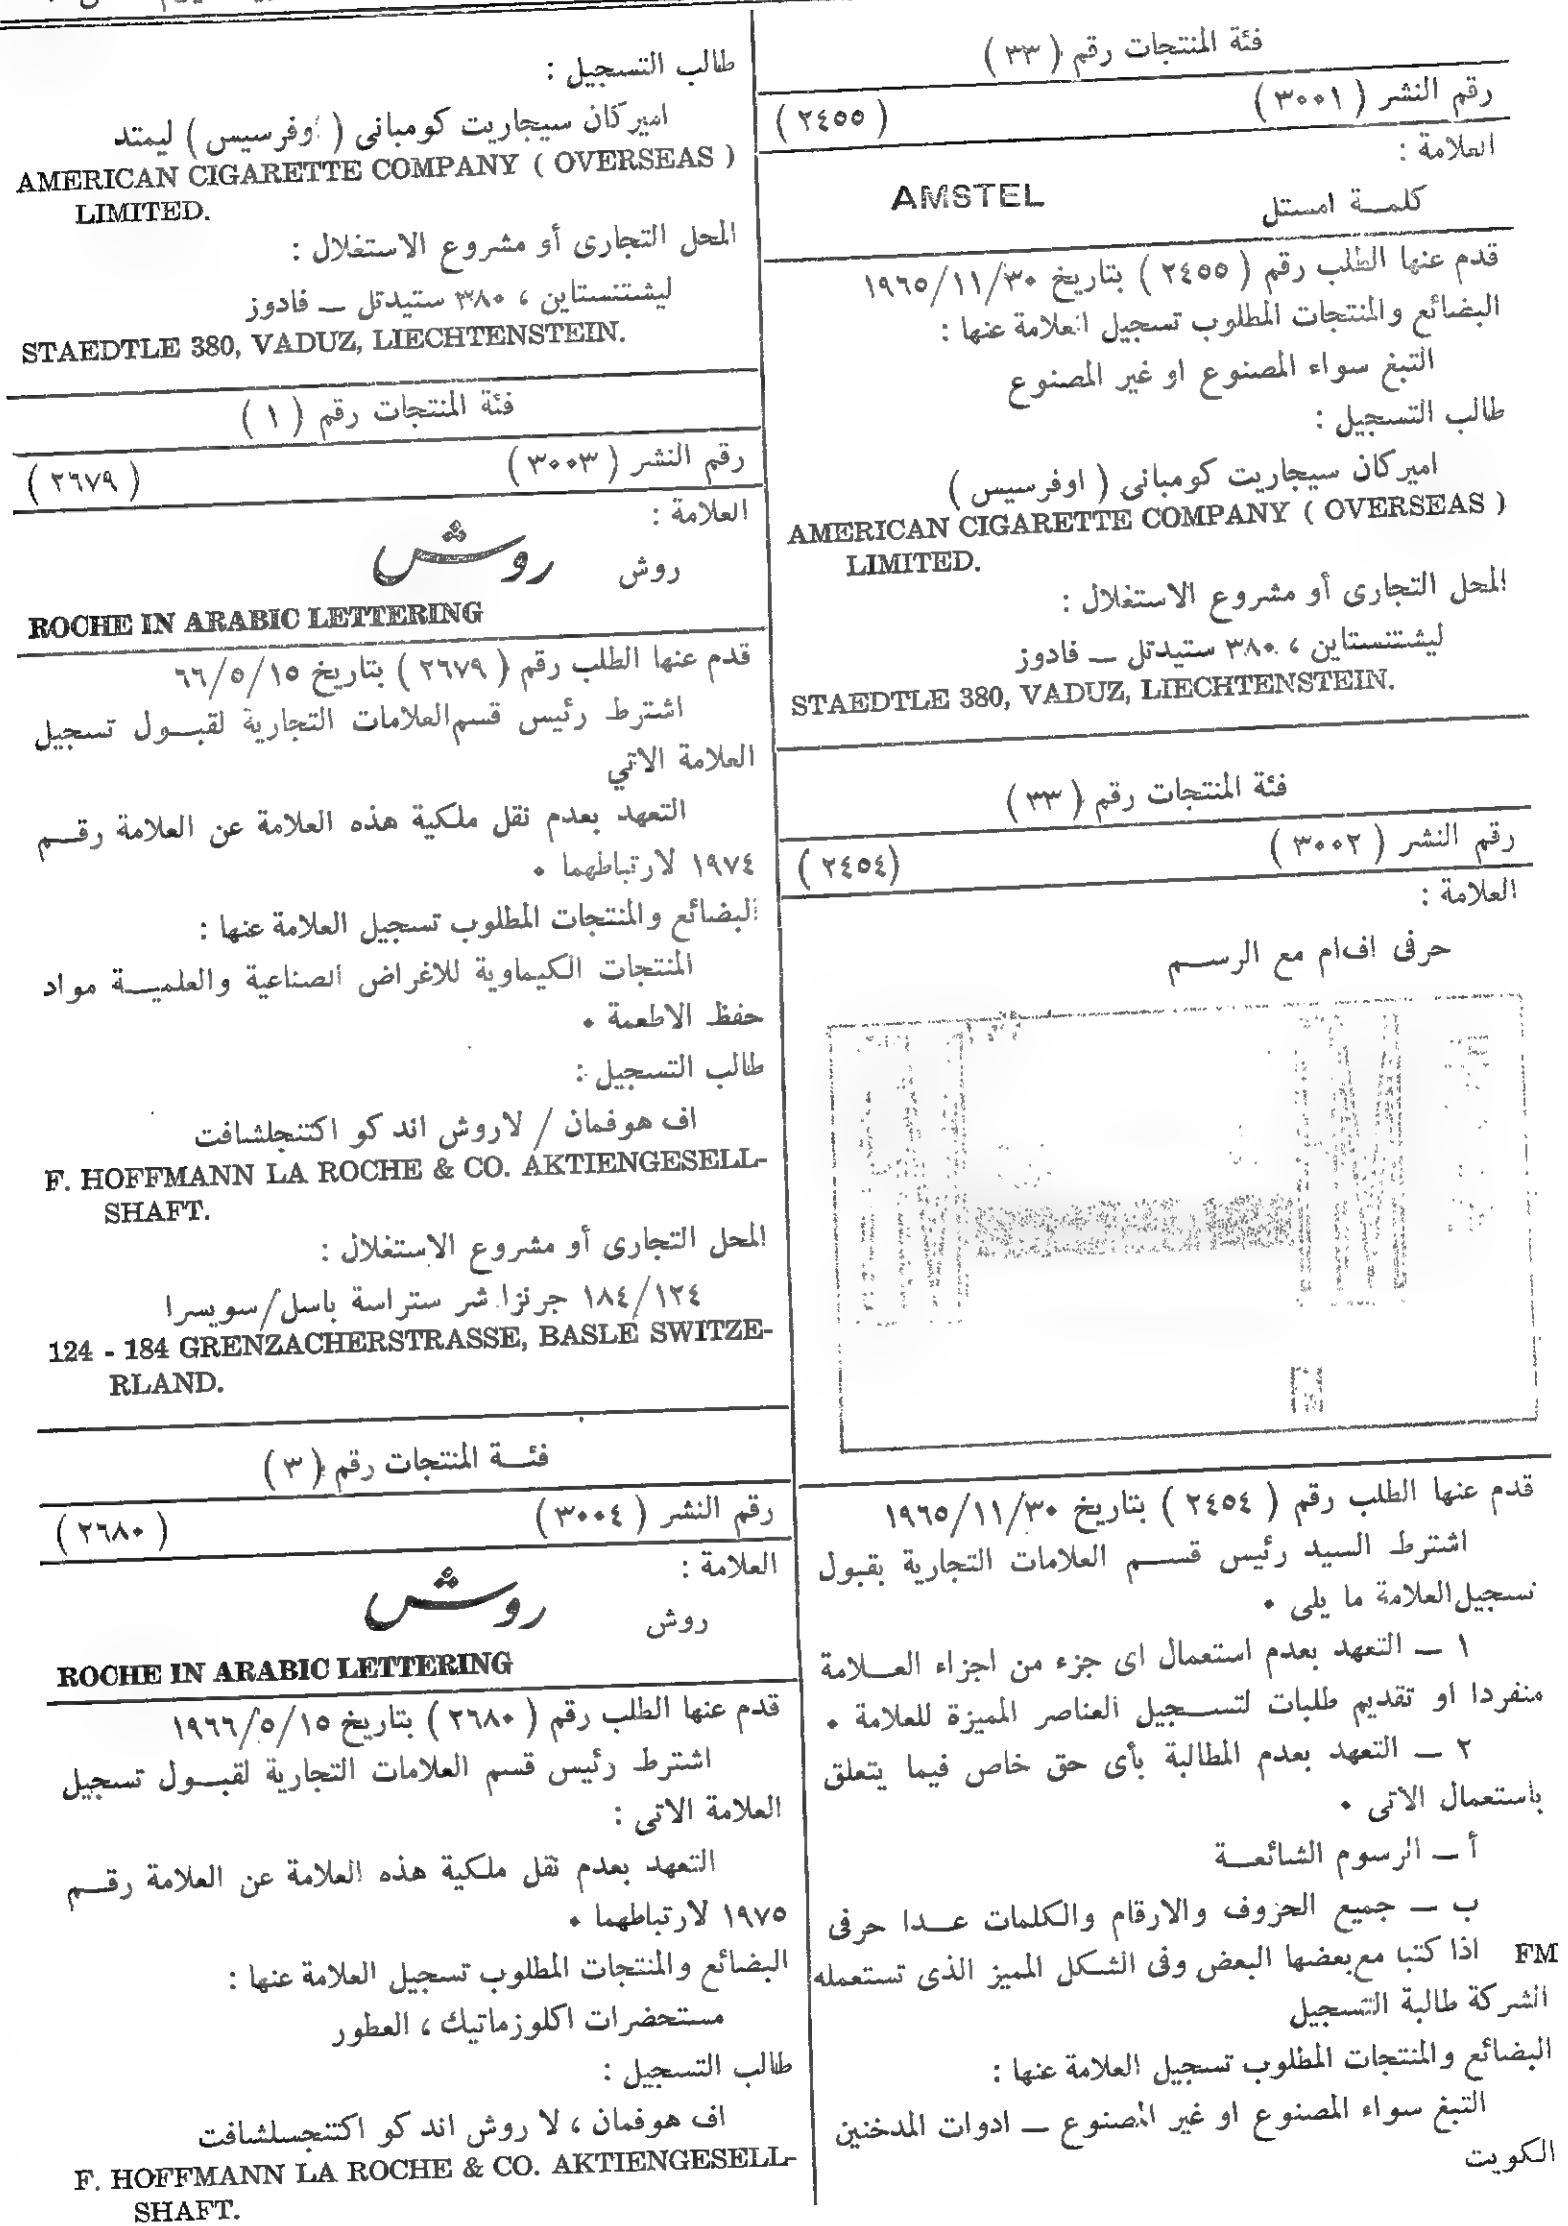 فئة المنتجات رقم ( ٣٣ )
رقم النشر ( ٣٠٠١ ) ( ٢٤٥٥ )
العلامة :
كلمـــة امستل AMSTEL
قدم عنها الطلب رقم ( ٢٤٥٥ ) بتاريخ ١٩٦٥/١١/٣٠
البضائع والمنتجات المطلوب تسجيل العلامة عنها :
التبغ سواء المصنوع او غير المصنوع
طالب التسجيل :
اميركان سيجاريت كومبانى ( اوفرسيس )
AMERICAN CIGARETTE COMPANY ( OVERSEAS )
LIMITED.
المحل التجارى أو مشروع الاستغلال :
ليشتنستاين ، ٣٨٠ ستيدتل ــ فادوز
STAEDTLE 380, VADUZ, LIECHTENSTEIN.
فئة المنتجات رقم ( ٣٣ )
رقم النشر ( ٣٠٠٢ ) ( ٢٤٥٤ )
العلامة :
حرفى اف ام مع الرســـم
قدم عنها الطلب رقم ( ٢٤٥٤ ) بتاريخ ١٩٦٥/١١/٣٠
اشترط السيد رئيس قســـم العلامات التجارية بقبول
تسجيل العلامة ما يلى ٠
١ ــ التعهد بعدم استعمال اى جزء من اجزاء العـــلامة
منفردا او تقديم طلبات لتســـجيل العناصر المميزة للعلامة ٠
٢ ــ التعهد بعدم المطالبة بأى حق خاص فيما يتعلق
باستعمال الاتى ٠
أ ــ الرسوم الشائعـــة
ب ــ جميع الحزوف والارقام والكلمات عـــدا حرفى
FM اذا كتبا مع بعضها البعض وفى الشكل المميز الذى تستعمله
الشركة طالبة التسجيل
البضائع والمنتجات المطلوب تسجيل العلامة عنها :
التبغ سواء المصنوع او غير المصنوع ــ ادوات المدخنين
الكويت
طالب التسجيل :
اميركان سيجاريت كومبانى ( اوفرسيس ) ليمتد
AMERICAN CIGARETTE COMPANY ( OVERSEAS )
LIMITED.
المحل التجارى أو مشروع الاستغلال :
ليشتنستاين ، ٣٨٠ ستيدتل ــ فادوز
STAEDTLE 380, VADUZ, LIECHTENSTEIN.
فئة المنتجات رقم ( ١ )
رقم النشر ( ٣٠٠٣ ) ( ٢٦٧٩ )
العلامة :
روش روش
ROCHE IN ARABIC LETTERING
قدم عنها الطلب رقم ( ٢٦٧٩ ) بتاريخ ٦٦/٥/١٥
اشترط رئيس قسم العلامات التجارية لقبـــول تسجيل
العلامة الاتي
التعهد بعدم نقل ملكية هذه العلامة عن العلامة رقـــم
١٩٧٤ لارتباطهما ٠
البضائع والمنتجات المطلوب تسجيل العلامة عنها :
المنتجات الكيماوية للاغراض الصناعية والعلميـــة مواد
حفظ الاطعمة ٠
طالب التسجيل :
اف هوفمان / لاروش اند كو اكتنجلشافت
F. HOFFMANN LA ROCHE & CO. AKTIENGESELL-
SHAFT.
المحل التجارى أو مشروع الاستغلال :
١٨٤/١٢٤ جرنزا شر ستراسة باسل/سويسرا
124 - 184 GRENZACHERSTRASSE, BASLE SWITZE-
RLAND.
فئـــة المنتجات رقم ( ٣ )
رقم النشر ( ٣٠٠٤ ) ( ٢٦٨٠ )
العلامة :
روش روش
ROCHE IN ARABIC LETTERING
قدم عنها الطلب رقم ( ٢٦٨٠ ) بتاريخ ١٩٦٦/٥/١٥
اشترط رئيس قسم العلامات التجارية لقبـــول تسجيل
العلامة الاتى :
التعهد بعدم نقل ملكية هذه العلامة عن العلامة رقـــم
١٩٧٥ لارتباطهما ٠
البضائع والمنتجات المطلوب تسجيل العلامة عنها :
مستحضرات اكلوزماتيك ، العطور
طالب التسجيل :
اف هوفمان ، لا روش اند كو اكتنجسلشافت
F. HOFFMANN LA ROCHE & CO. AKTIENGESELL-
SHAFT.